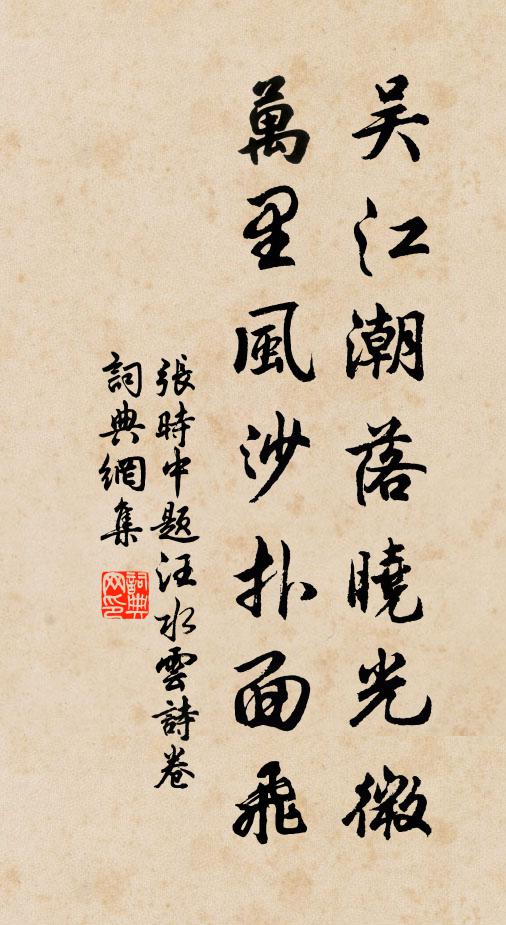 吴江潮落曉光微
萬里風沙扑面飛
張時中題汪水雲詩卷
詞典網集
詞典网印